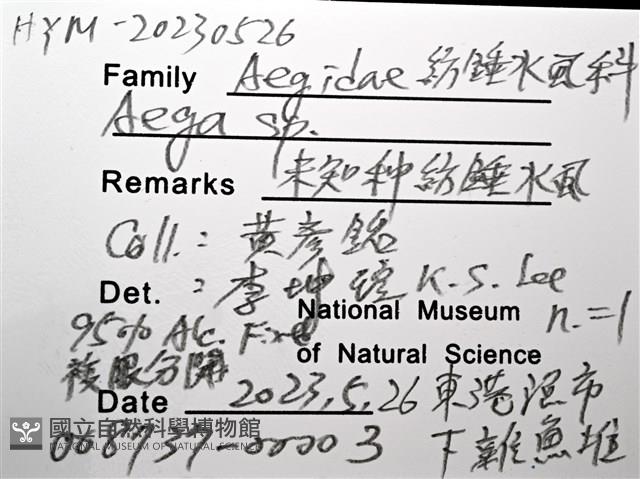 HYM-20230526
Family Aegidae 紡錘水虱科
Aega sp.
Remarks 未知种紡錘水虱
Coll.: 黃彥銘
Det.: 李坤瑄 K.S. Lee
National Museum n.=1
95% Alc. Fixed
of Natural Science
複眼分開
Date 2023.5.26 東港漁市
國立自然科學博物館
NATIONAL MUSEUM OF NATURAL SCIENCE
00003 下雜魚堆